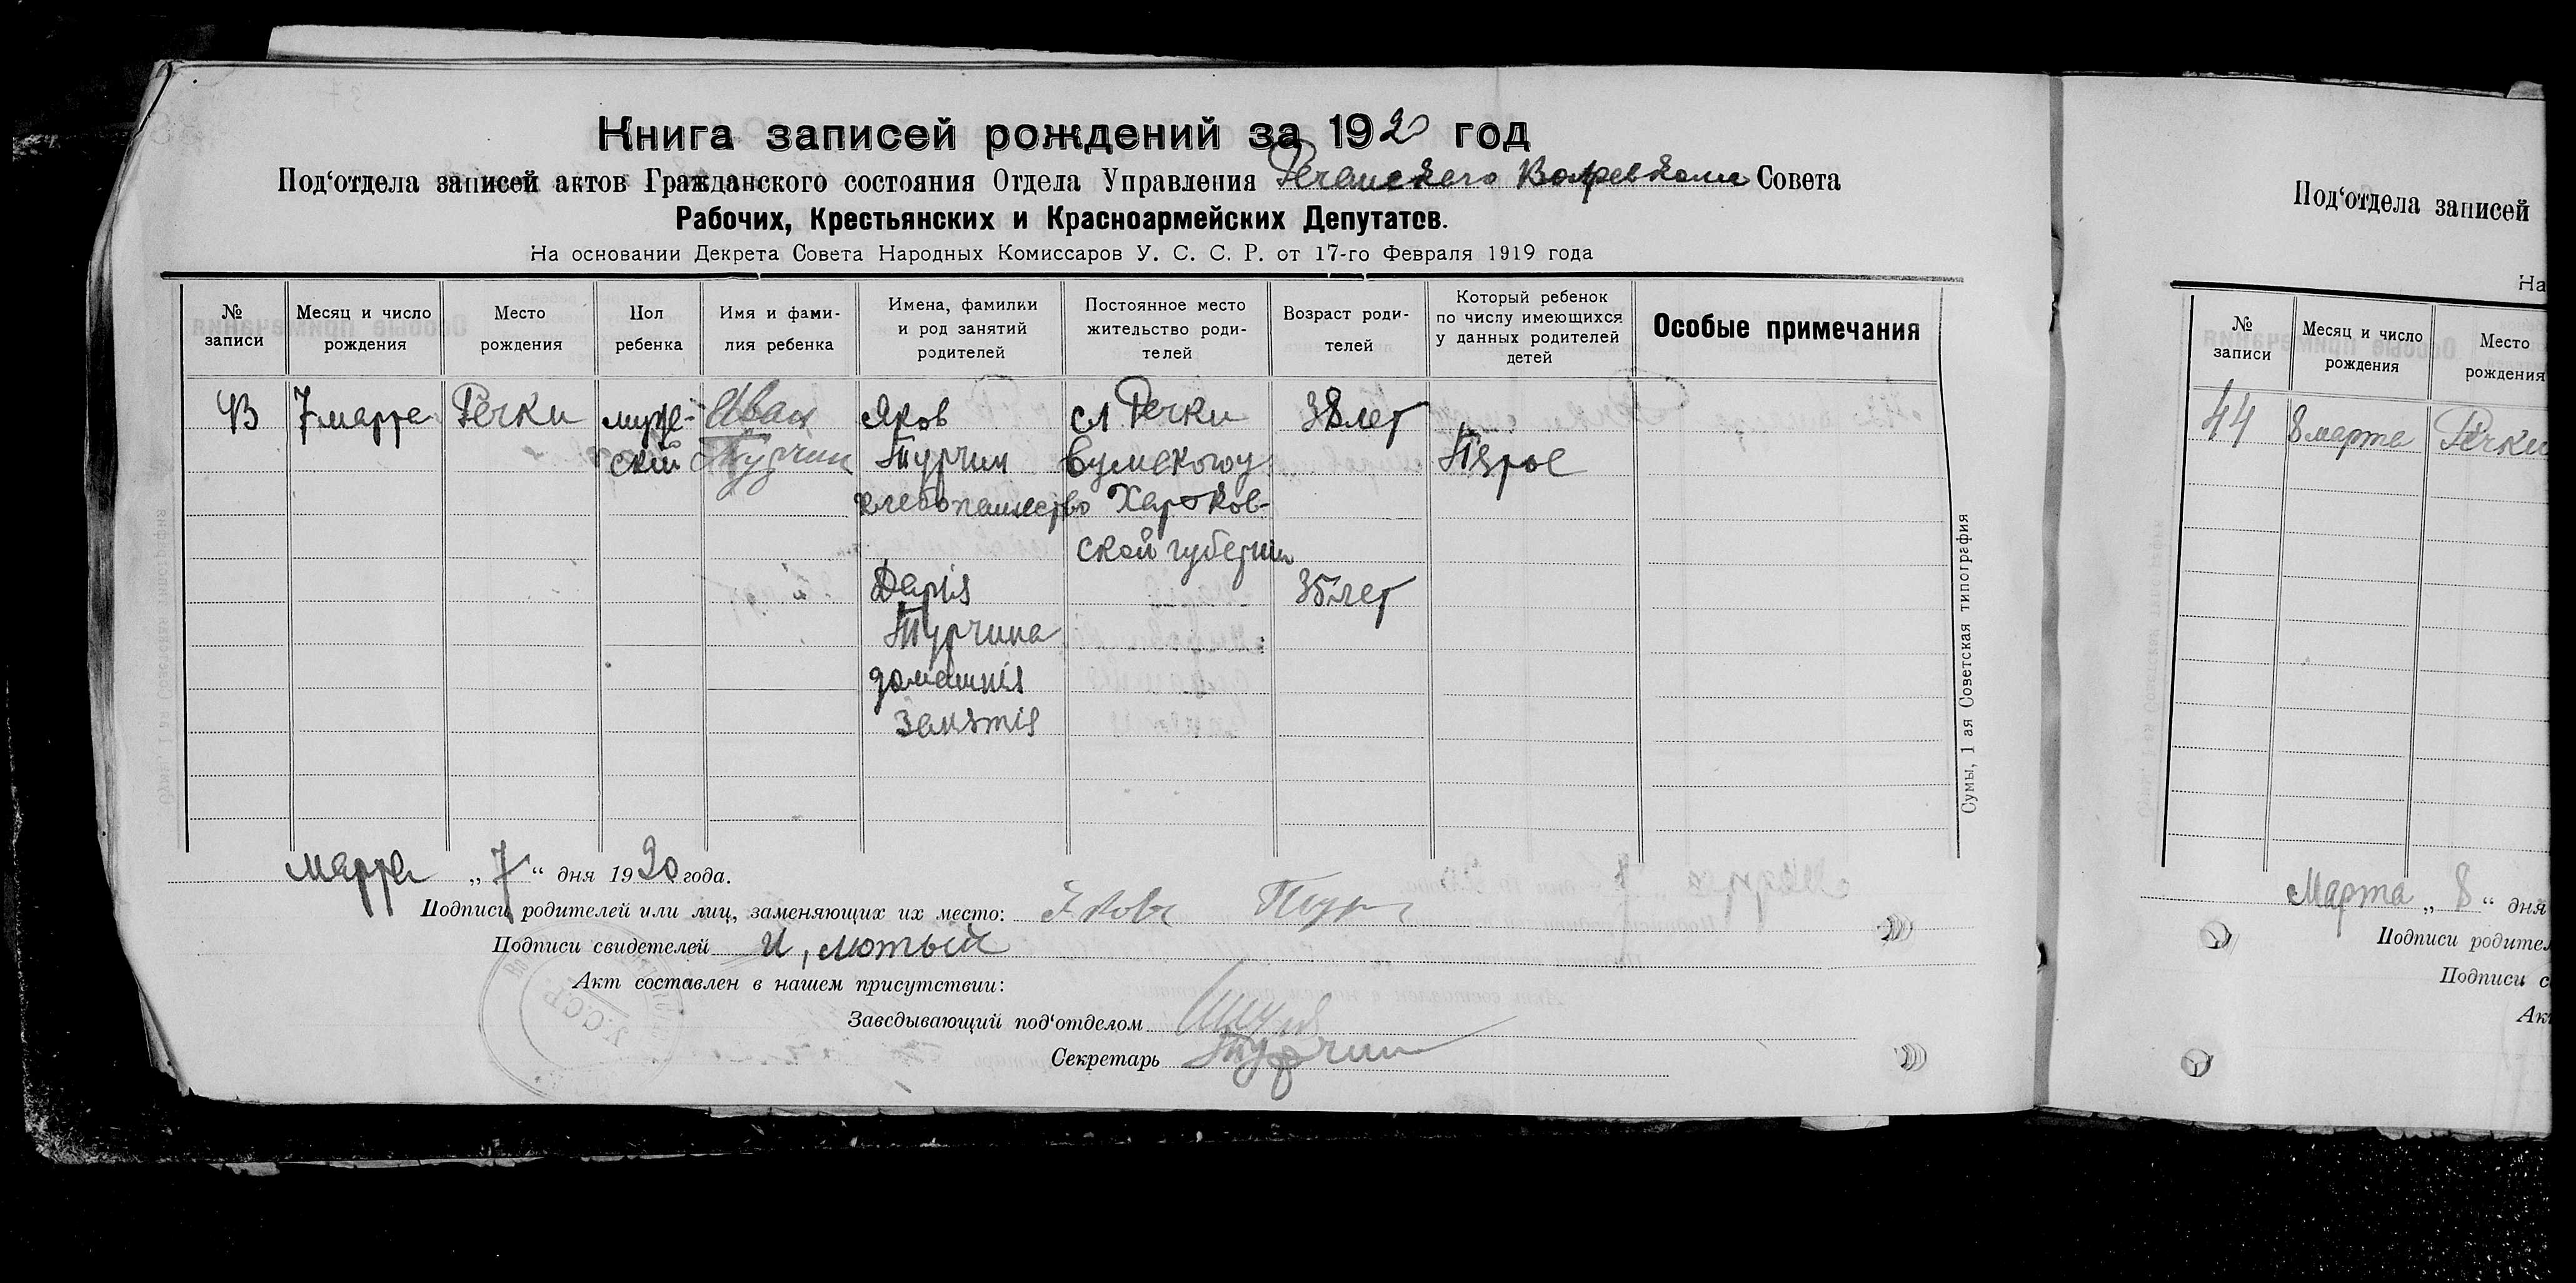 Книга записей рождений за 1920 год
Под‘отдела записей актов Гражданского состояния Отдела Управления Речанского Волревкома Совета
Рабочих, Крестьянских и Красноармейских Депутатов.
На основании Декрета Совета Народных Комиссаров У. С. С. Р. от 17-го Февраля 1919 года
№ записи
Месяц и число рождения
Место рождения
Пол ребенка
Имя и фами-
лия ребенка
Имена, фамилии
и род занятий
родителей
Постоянное место
жительство роди-
телей
Возраст роди-
телей
Который ребенок
по числу имеющихся
у данных родителей
детей
Особые примечания
43 7 марта Речки муже- Иван Яков сл Речки 38 лет
ский Турчин Турчин Сумского у Первое
хлебопашество Харьков-
ской губернии
Дарія 35 лет
Турчина
домашнія
занятія
марта „7“ дня 1920 года.
Подписи родителей или лиц, заменяющих их место: Яковъ
Подписи свидетелей И, лютый
Акт составлен в нашем присутствии:
Заведывающий под‘отделом
Секретарь Турчин
Сумы, 1 ая Советская типография
У.С.С.Р.
Под‘отдела записей
На
№
записи
Месяц и число
рождения
Место
рождения
44 8 марта Речки
Марта „8“ дня
Подписи родител
Подписи с
Ак